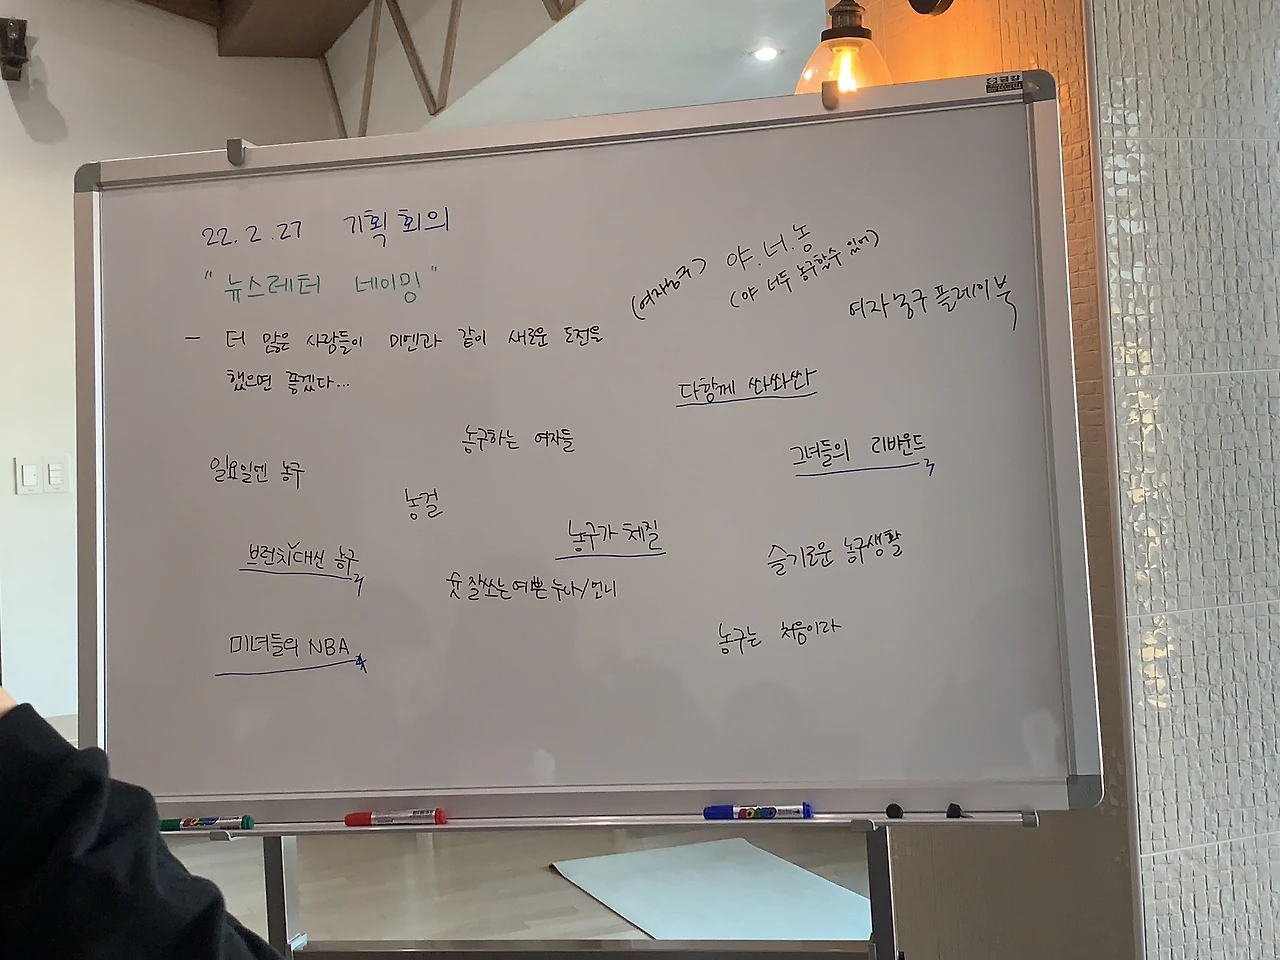 22. 2. 27 기획 회의
"뉴스레터 네이밍"
- 더 많은 사람들이 미멘과 같이 새로운 도전을
했으면 좋겠다...
(여자농구) 야.너.농
(야 너두 농구할수 있어)
여자농구 플레이북
다함께 쏴쏴쏴
농구하는 여자들
그녀들의 리바운드
일요일엔 농구
농걸
농구가 체질
브런치 대신 농구
슬기로운 농구생활
슛 잘쏘는 예쁜 누나/언니
미녀들의 NBA
농구는 처음이라